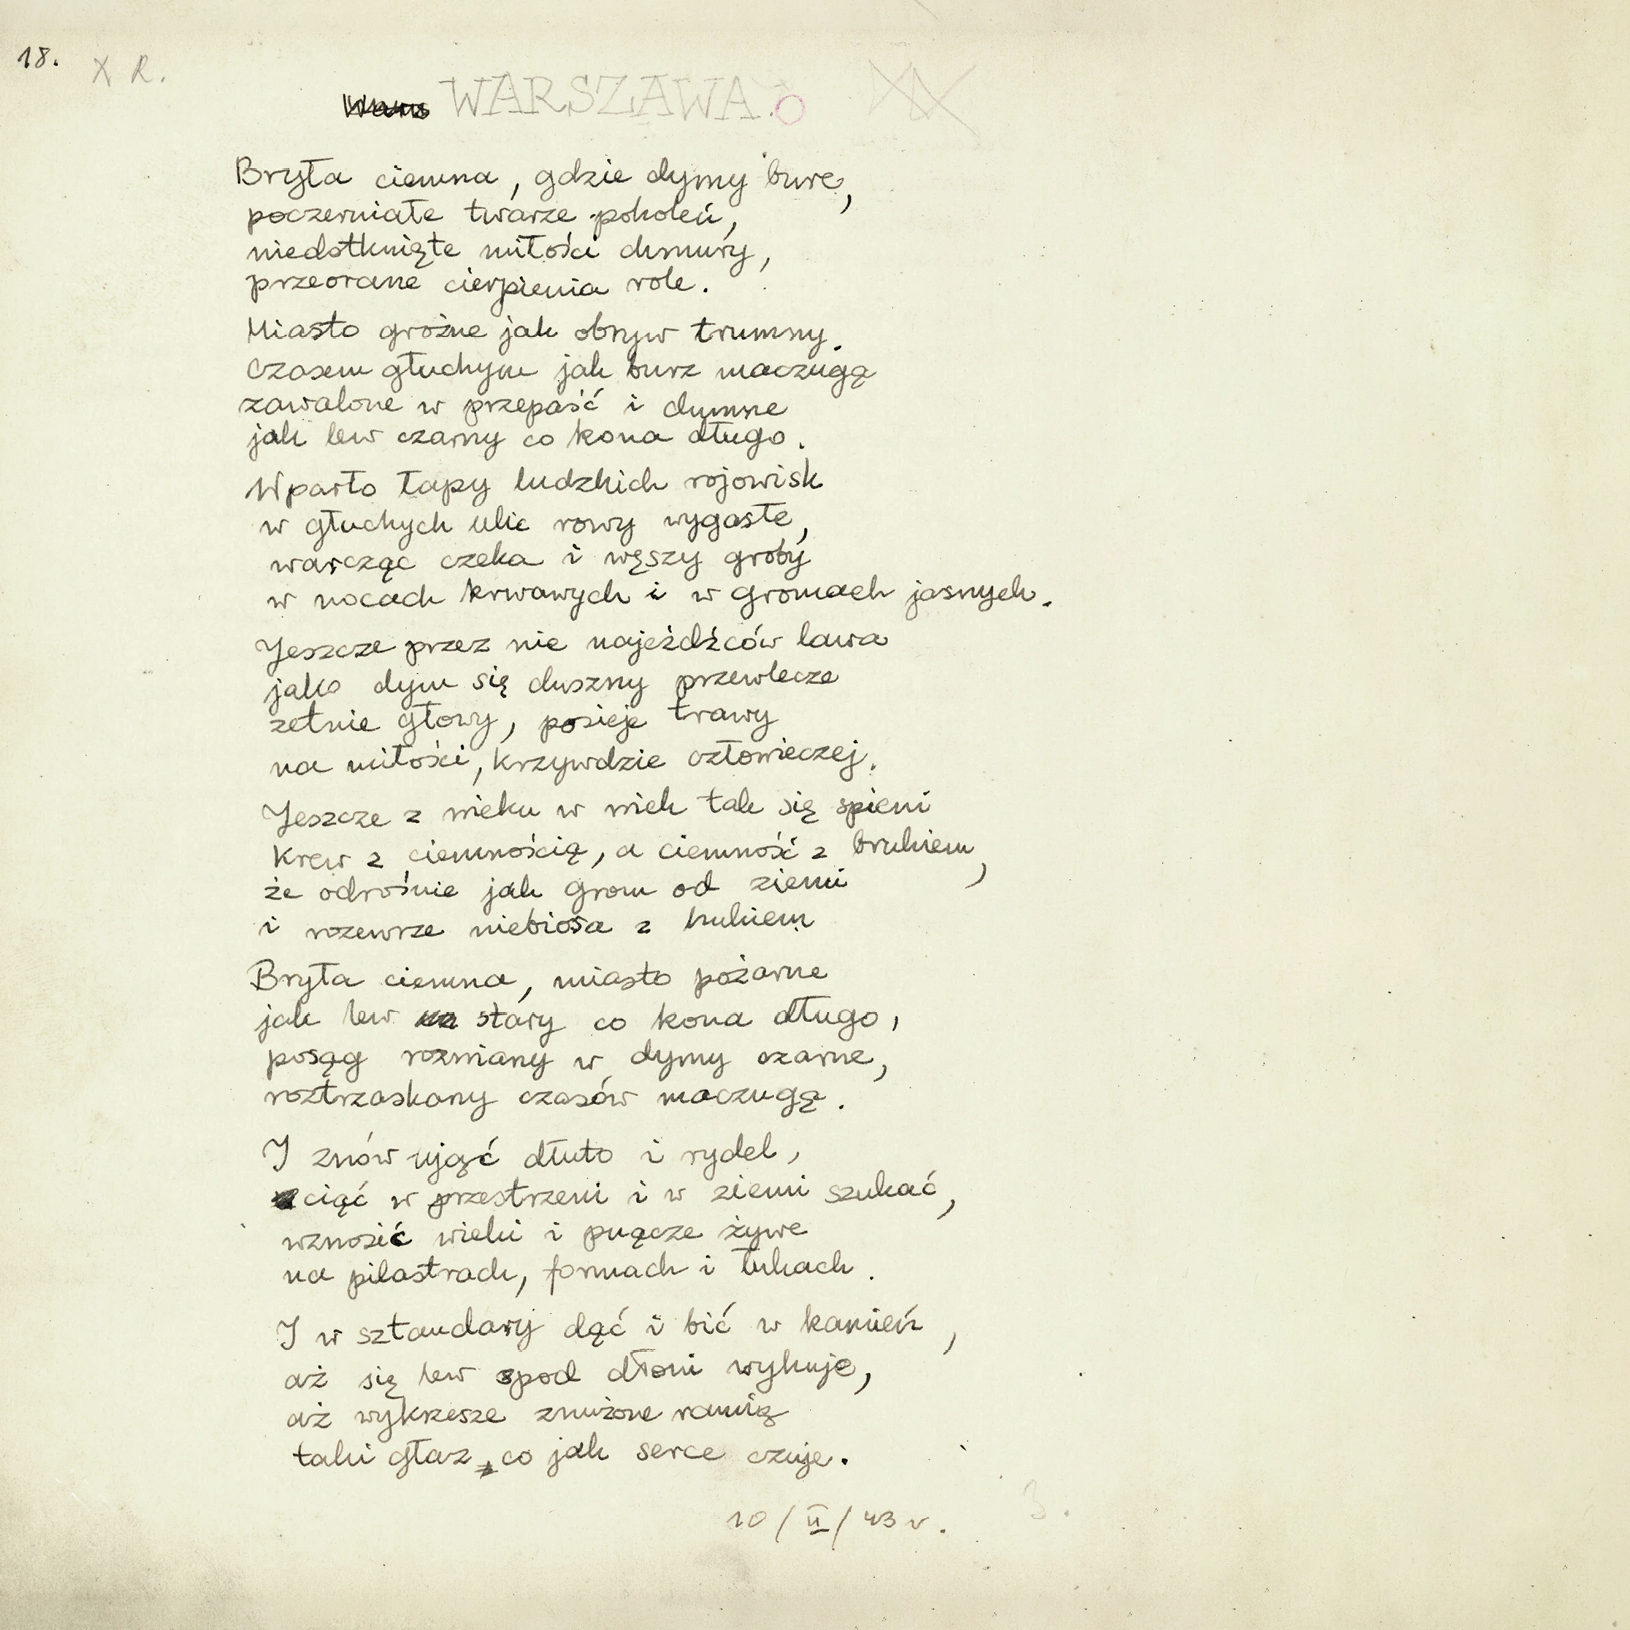 18. X R.
WARSZAWA.
Bryła ciemna, gdzie dymy bure,
poczerniałe twarze pokoleń,
niedotknięte miłości chmury,
przeorane cierpienia role.
Miasto groźne jak obryw trumny.
Czasem głuchym jak burz maczugą
zawalone w przepaść i dumne
jak lew czarny co kona długo.
Wparło łapy ludzkich rojowisk
w głuchych ulic rowy wygasłe,
warcząc czeka i węszy groby
w nocach krwawych i w gromach jasnych.
Jeszcze przez nie najeźdźców lawa
jako dym się duszny przewlecze
zetnie głowy, posieje trawy
na miłości, krzywdzie człowieczej.
Jeszcze z wieku w wiek tak się spieni
krew z ciemnością, a ciemność z brukiem,
że odrośnie jak grom od ziemi
i rozewrze niebiosa z hukiem
Bryła ciemna, miasto pożarne
jak lew stary co kona długo,
posąg rozwiany w dymy czarne,
roztrzaskany czasów maczugą.
I znów ująć dłuto i rydel,
ciąć w przestrzeni i w ziemi szukać,
wznosić wieki i pnącze żywe
na pilastrach, formach i łukach.
I w sztandary dąć i bić w kamień,
aż się lew spod dłoni wykuje,
aż wykrzesze znużone ramię
taki głaz, co jak serce czuje.
10/II/43 r.
3.